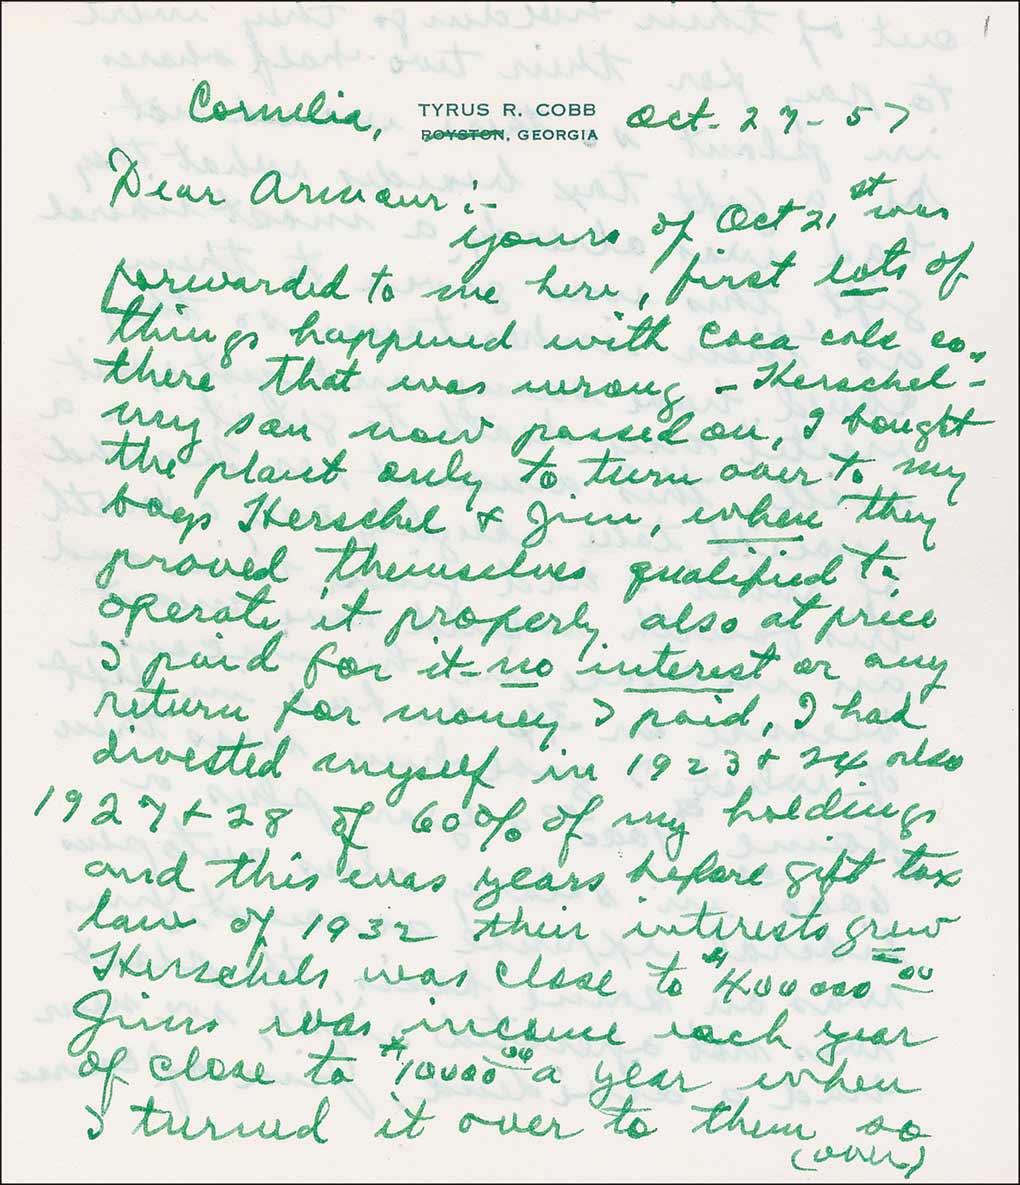 1
Cornelia, TYRUS R. COBB Oct. 27 - 57
ROYSTON, GEORGIA
Dear Armour :-
yours of Oct 21st was
forwarded to me here, first lots of
things happened with Coca cola co.,
there that was wrong - Herschel -
my son now passed on, I bought
the plant only to turn over to my
boys Herschel & Jim, when they
proved themselves qualified to
operate it properly also at price
I paid for it - no interest or any
return for money I paid, I had
divested myself in 1923 & 24 also
1927 & 28 of 60% of my holdings
and this was years before gift tax
law of 1932 their interests grew
Herschels was close to $400000.00
Jims was income each year
of close to $10000.00 a year when
I turned it over to them so
(over)